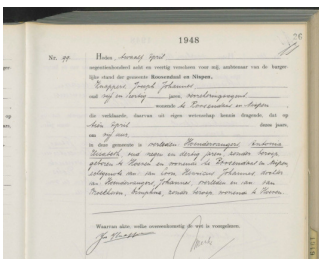 1948
26
Nr. 99 Heden twaalf April
negentienhonderd acht en veertig verscheen voor mij, ambtenaar van de burger-
lijke stand der gemeente Roosendaal en Nispen,
Knappers Joseph Johannes
oud vijf en veertig jaar verzekeringsagent
wonende te Roosendaal en Nispen
die verklaarde, daarvan uit eigen wetenschap kennis dragende, dat op
tien April dezes jaars,
om vijf uur
in deze gemeente is overleden
Elisabeth, oud negen en dertig jaren, zonder beroep
geboren te Hoeven en wonende te Roosendaal en Nispen
echtgenote van van Loon Johannes dochter
van Johannes, overleden en van van
zonder beroep wonende te Hoeven
Waarvan akte, welke overeenkomstig de wet is voorgelezen.